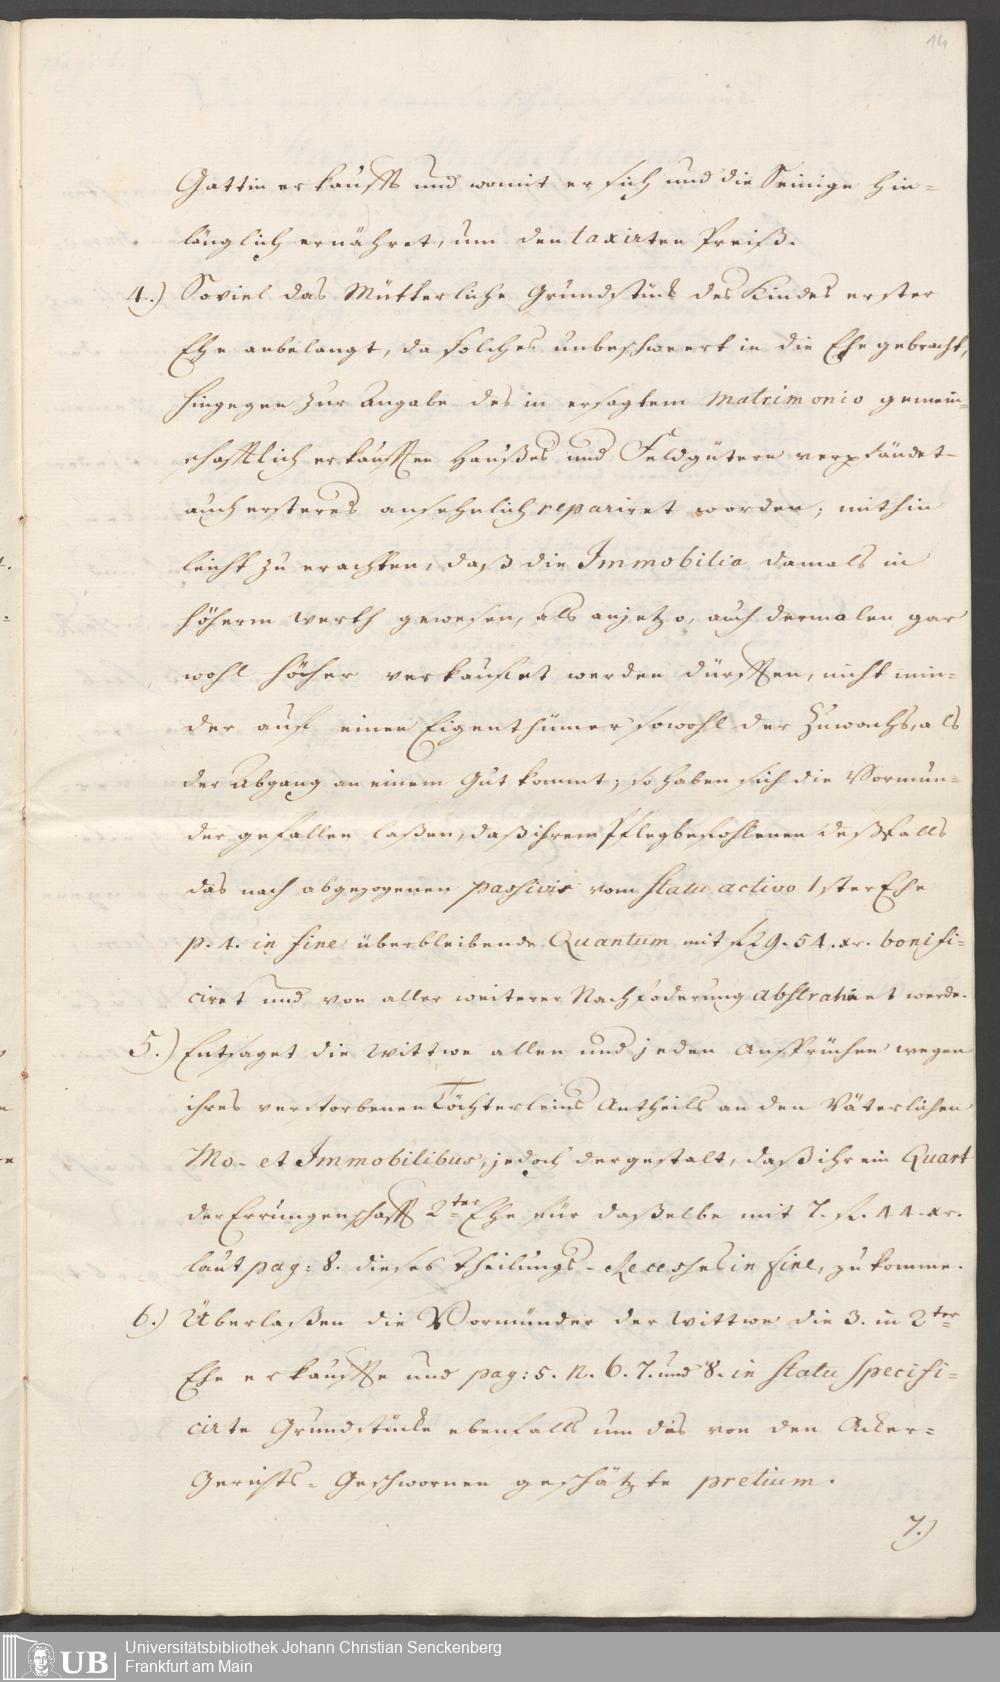 14
Gattin erkaufft und womit er sich und die Seinige hin=
länglich ernähret, um den taxirten Preiß.
4.) Soviel das Mütterliche Grundstück des Kindes erster
Ehe anbelangt, da solches unbeschwert in die Ehe gebracht,
hingegen zur Angabe des in ersagtem Matrimonio gemein=
schafftlich erkaufften Haußes und Feldgütern verpfändet
auch ersteres ansehnlich repariret worden; mithin
leicht zu erachten, daß die Immobilia damals in
höherm Werth gewesen, als anjetzo, auch dermalen gar
wohl höcher verkaufet werden dürfften, nicht min=
der auf einen Eigenthümer sowohl der Zuwachs, als
der Abgang an einem Gut kommt; so haben sich die Vormün=
der gefallen laßen, daß ihrem Pflegbefohlenen deßfalls
das nach abgezogenen passivis vom Statu activo 1ster Ehe
p. 4. in fine überbleibende Quantum mit f 29. 54. xr. bonifi=
ciret und von aller weiterer Nachfoderung abstrahiret werde.
5.) Entsaget die Wittwe allen und jeden Ansprüchen wegen
ihres verstorbenen Töchterleins Antheils an den Väterlichen
Mo- et Immobilibus, jedoch dergestalt, daß ihr ein Quart
der Errungenschafft 2ter Ehe für daßelbe mit 7. fl. 44. xr.
laut pag: 8. dieses Theilungs-Recesses in fine, zu komme.
6.) Überlaßen die Vormünder der Wittwe die 3. in 2ter
Ehe erkauffte und pag: 5. N. 6. 7. und 8. in Statu specifi=
cirte Grundstücke ebenfalls um das von den Acker=
Gerichts=Geschwornen geschätzte pretium.
7.)
UB
Universitätsbibliothek Johann Christian Senckenberg
Frankfurt am Main